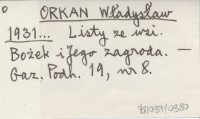 ORKAN Władysław
1931... Listy ze wsi.
Bożek i Jego zagroda. —
Gaz. Podh. 19, nr 8.